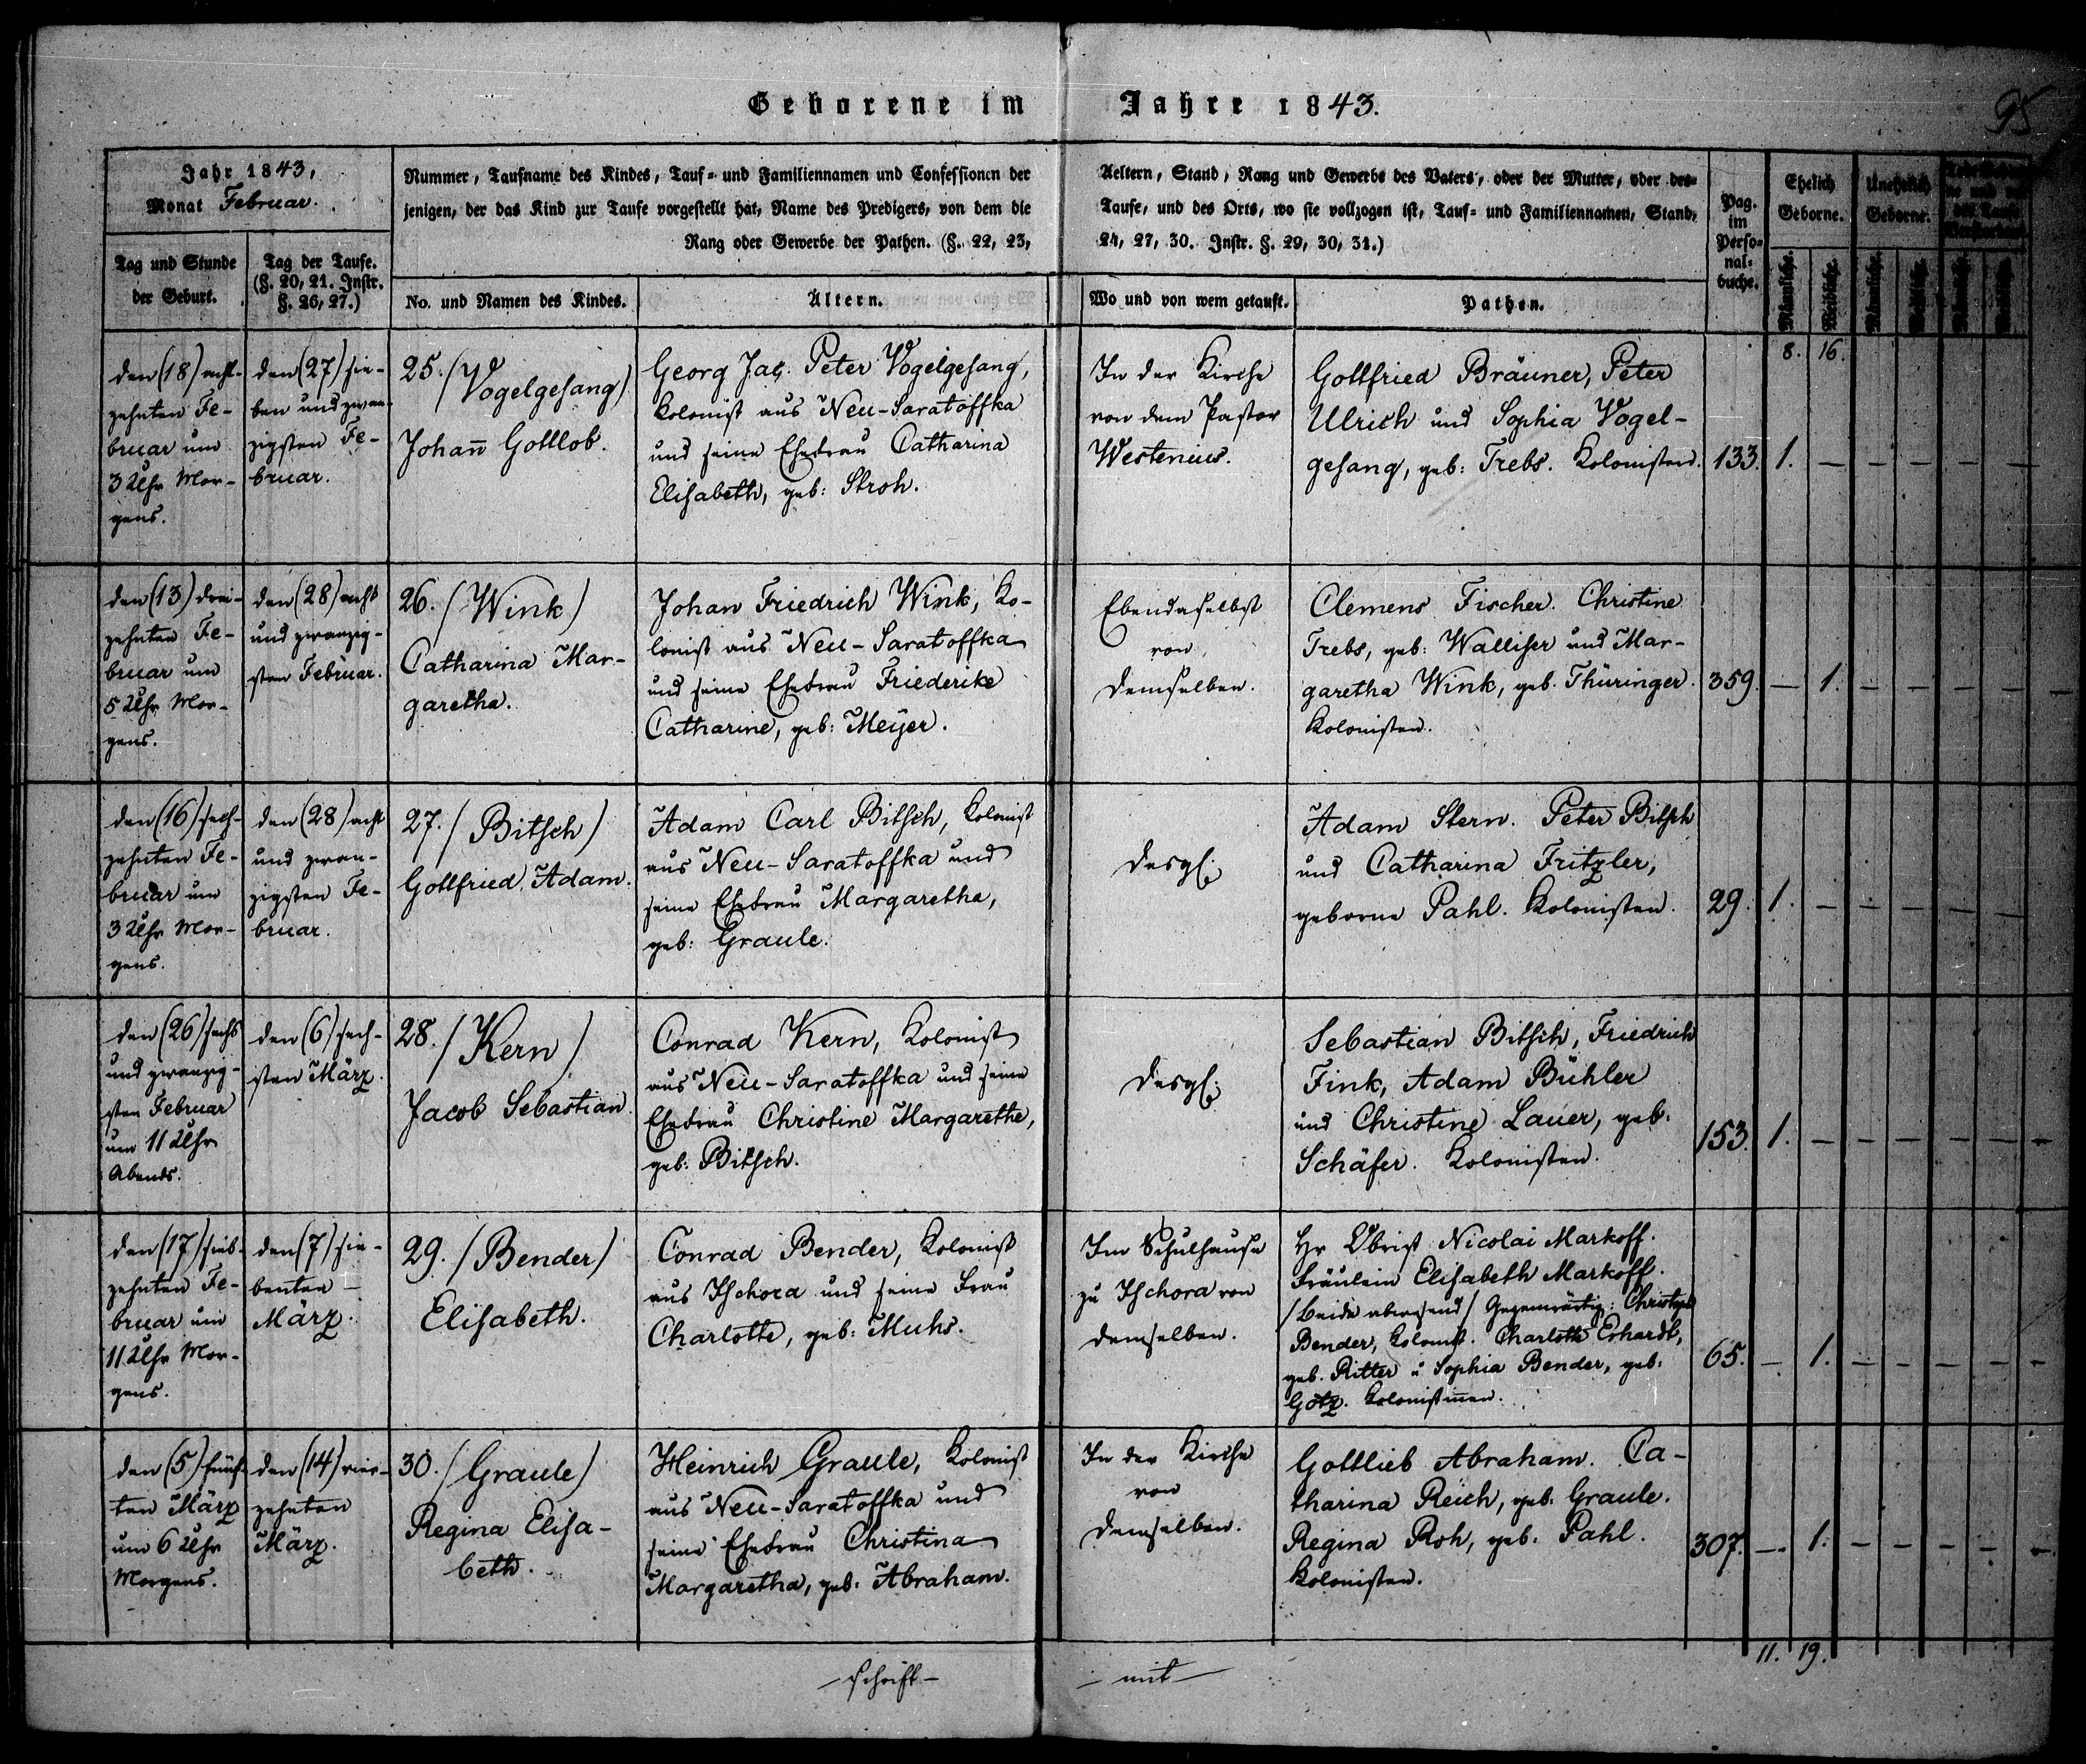 Geborene im Jahre 1843.
95
Jahr 1843,
Monat Februar.
Tag und Stunde
der Geburt.
Tag der Taufe.
(§. 20, 21. Instr.
§. 26, 27.)
Nummer, Taufname des Kindes, Tauf- und Familiennamen und Confessionen der
jenigen, der das Kind zur Taufe vorgestellt hat, Name des Predigers, von dem die
Rang oder Gewerbe der Pathen. (§. 22, 23,
No. und Namen des Kindes.
Ältern.
Aeltern, Stand, Rang und Gewerbe des Vaters, oder der Mutter, oder des-
Taufe, und des Orts, wo sie vollzogen ist, Tauf- und Familiennamen, Stand,
24, 27, 30. Instr. §. 29, 30, 31.)
Wo und von wem getauft.
Pathen.
Pag.
im
Perso-
nal-
buche.
Ehelich
Geborne.
Unehelich
Geborne.
Männliche.
Weibliche.
Männliche.
Weibliche.
8. 16.
den (18) acht-
zehnten Fe-
bruar um
3 Uhr Mor-
gens.
den (27) sie-
ben und zwan-
zigsten Fe-
bruar.
25. /Vogelgesang/
Johan̄ Gottlob.
Georg Jac. Peter Vogelgesang,
Kolonist aus Neu-Saratoffka
und seine Ehefrau Catharina
Elisabeth, geb: Stroh.
In der Kirche
von dem Pastor
Westenius.
Gottfried Bräuner, Peter
Ulrich und Sophia Vogel-
gesang, geb: Trebs. Kolonisten.
133. 1. — — — — —
den (13) drei-
zehnten Fe-
bruar um
5 Uhr Mor-
gens.
den (28) acht
und zwanzig-
sten Februar.
26. /Wink/
Catharina Mar-
garetha.
Johan Friedrich Wink, Ko-
lonist aus Neu-Saratoffka
und seine Ehefrau Friederike
Catharine, geb: Meyer.
Ebendaselbst
von
demselben.
Clemens Fischer. Christine
Trebs, geb: Walliser und Mar-
garetha Wink, geb. Thüringer.
Kolonisten.
359. — 1. — — — —
den (16) sech-
zehnten Fe-
bruar um
3 Uhr Mor-
gens.
den (28) acht
und zwan-
zigsten Fe-
bruar.
27. /Bitsch/
Gottfried Adam.
Adam Carl Bitsch, Kolonist
aus Neu-Saratoffka und
seine Ehefrau Margaretha,
geb: Graule.
desgl:
Adam Stern. Peter Bitsch
und Catharina Fritzler,
geborne Pahl. Kolonisten.
29. 1. — — — — —
den (26) sechs
und zwanzig-
sten Februar
um 11 Uhr
Abends.
den (6) sech-
sten März.
28. /Kern/
Jacob Sebastian.
Conrad Kern, Kolonist
aus Neu-Saratoffka und seine
Ehefrau Christine Margarethe,
geb: Bitsch.
desgl:
Sebastian Bitsch, Friedrich
Fink, Adam Bühler
und Christine Lauer, geb:
Schäfer. Kolonisten.
153. 1. — — — — —
den (17) sieb-
zehnten Fe-
bruar um
11 Uhr Mor-
gens.
den (7) sie-
benten —
März.
29. /Bender/
Elisabeth.
Conrad Bender, Kolonist
aus Ischora und seine Frau
Charlotte, geb: Muhs.
Im Schulhause
zu Ischora von
demselben.
Hr Obrist Nicolai Markoff.
Fräulein Elisabeth Markoff.
/beide abwesend/ Gegenwärtig: Christoph
Bender, Kolonist. Charlotte Erhardt,
geb. Ritter u Sophia Bender, geb:
Götz. Kolonistinen.
65. — 1. — — — —
den (5) fünf-
ten März
um 6 Uhr
Morgens.
den (14) vier-
zehnten
März.
30. /Graule/
Regina Elisa-
beth.
Heinrich Graule, Kolonist
aus Neu-Saratoffka und
seine Ehefrau Christina
Margaretha, geb: Abraham.
In der Kirche
von
demselben.
Gottlieb Abraham. Ca-
tharina Reich, geb: Graule.
Regina Roh, geb: Pahl.
Kolonisten.
307. — 1. — — — —
11. 19.
— schrift —
— mit —